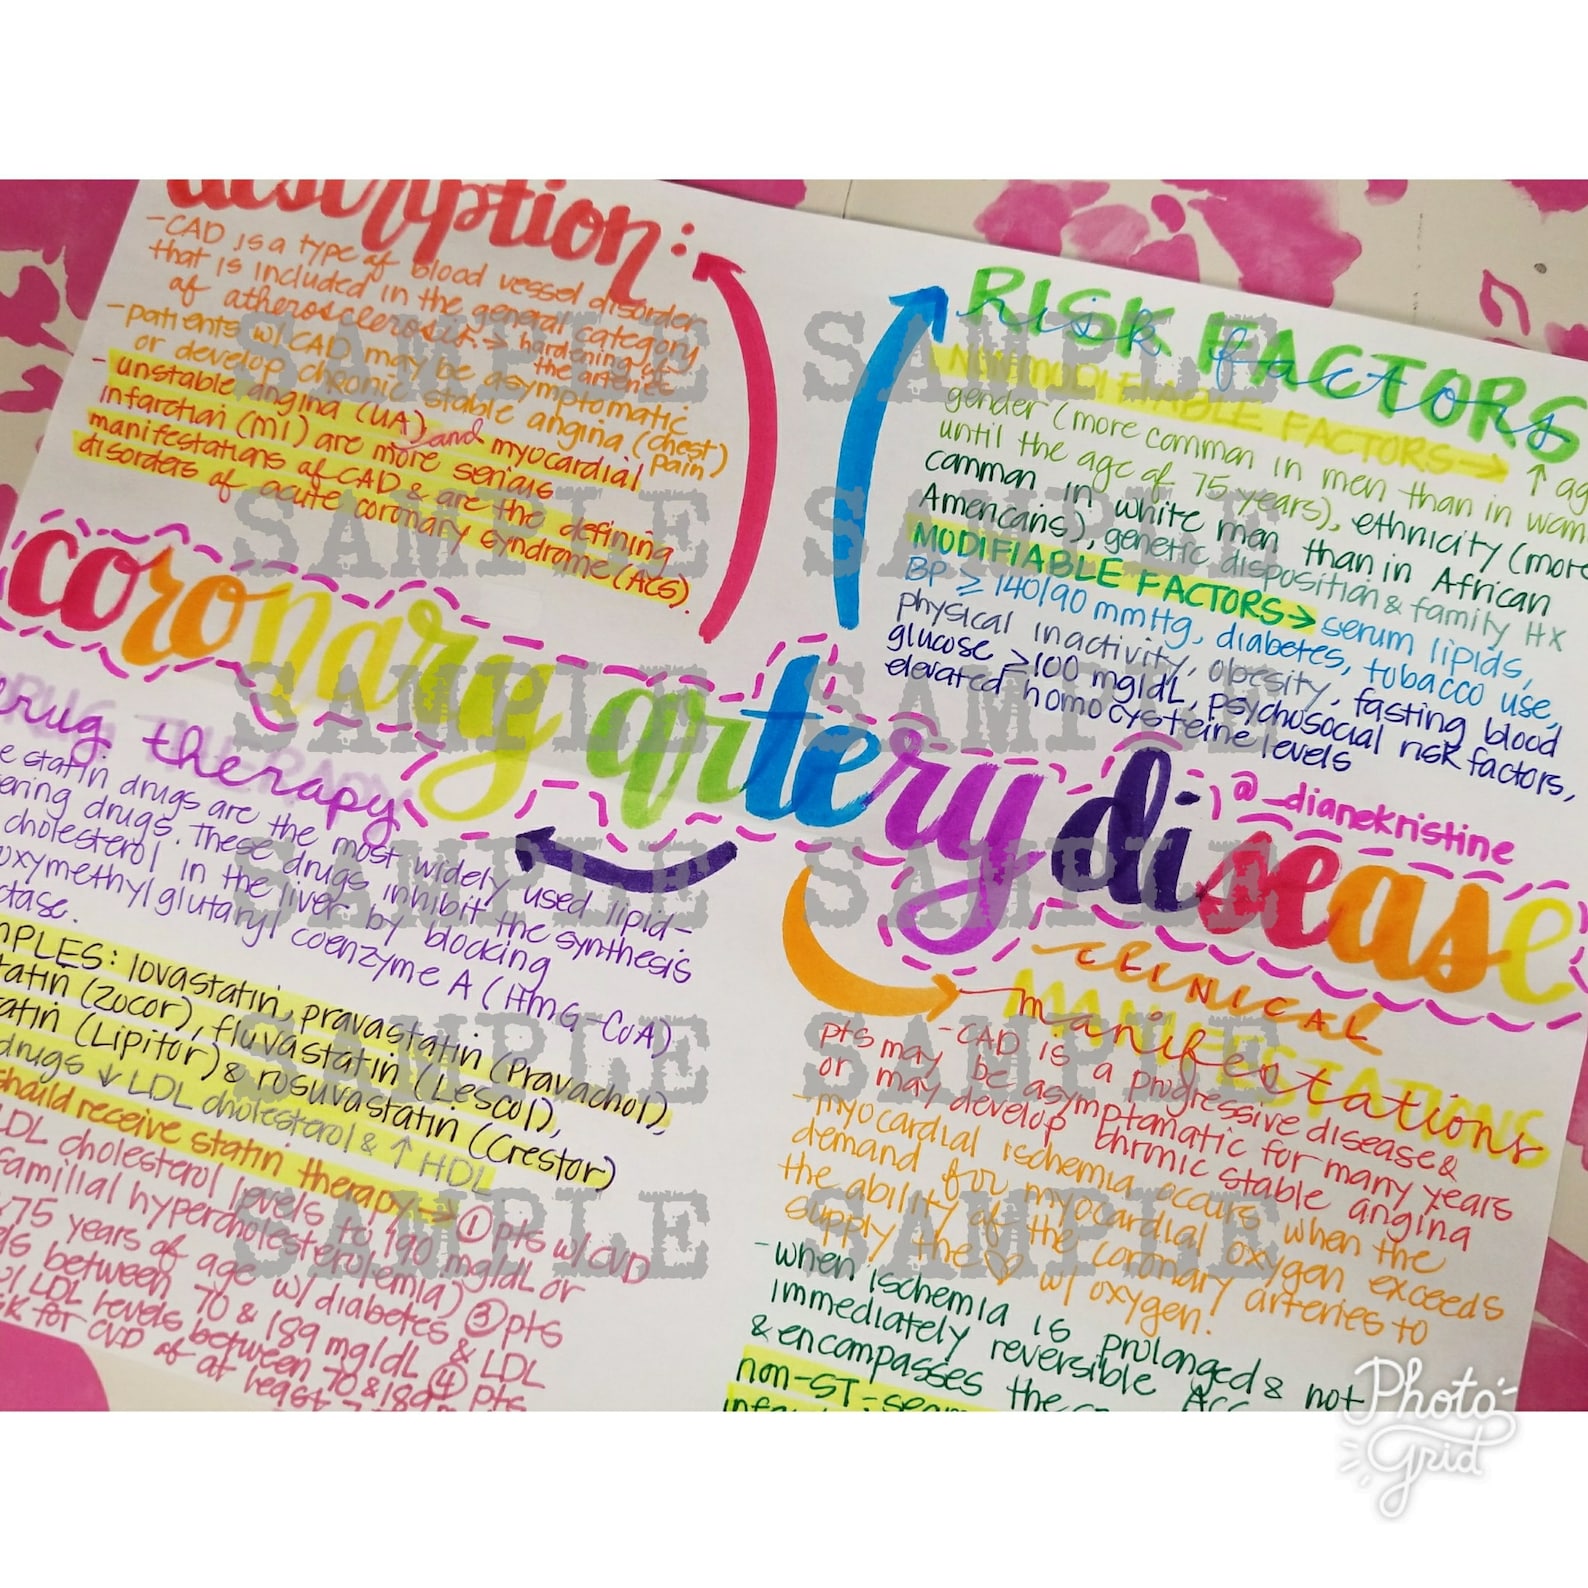 description:
-CAD is a type of blood vessel disorder
that is included in the general category
of atherosclerosis → hardening of
the arteries
-patients w/ CAD may be asymptomatic
or develop chronic stable angina (chest
pain)
-unstable angina (UA) and myocardial
infarction (MI) are more serious
manifestations of CAD & are the defining
disorders of acute coronary syndrome (ACS).
RISK FACTORS
risk factors
NONMODIFIABLE FACTORS → ↑
gender (more common in men than in
until the age of 75 years), ethnicity (more
common in white men than in African
Americans), genetic disposition & family Hx
MODIFIABLE FACTORS → serum lipids,
BP ≥ 140/90 mmHg, diabetes, tobacco use,
physical inactivity, obesity, fasting blood
glucose ≥100 mg/dL, psychosocial risk factors,
elevated homocysteine levels
coronary artery disease
@_dianekristine
DRUG THERAPY
drug therapy
statin drugs are the most widely used lipid-
drugs. These drugs inhibit the synthesis
cholesterol in the liver by blocking
glutaryl coenzyme A (HMG-CoA)
: lovastatin, pravastatin (Pravachol),
(Zocor), fluvastatin (Lescol),
(Lipitor) & rosuvastatin (Crestor)
drugs ↓ LDL cholesterol & ↑ HDL
should receive statin therapy → ① pts w/ CVD
LDL cholesterol levels to 190 mg/dL or
familial hypercholesterolemia) ③ pts
75 years of age w/ diabetes & LDL
between 70 & 189 mg/dL ④ pts
w/ LDL levels between 70 & 189
for CVD of at least
CLINICAL
MANIFESTATIONS
manifestations
-CAD is a progressive disease &
pts may be asymptomatic for many years
or may develop chronic stable angina
-myocardial ischemia occurs when the
demand for myocardial oxygen exceeds
the ability of the coronary arteries to
supply the ♡ w/ oxygen!
-when ischemia is prolonged & not
immediately reversible
& encompasses the
non-ST-
SAMPLE SAMPLE
SAMPLE SAMPLE
SAMPLE SAMPLE
SAMPLE SAMPLE
SAMPLE SAMPLE
SAMPLE SAMPLE
Photo
Grid